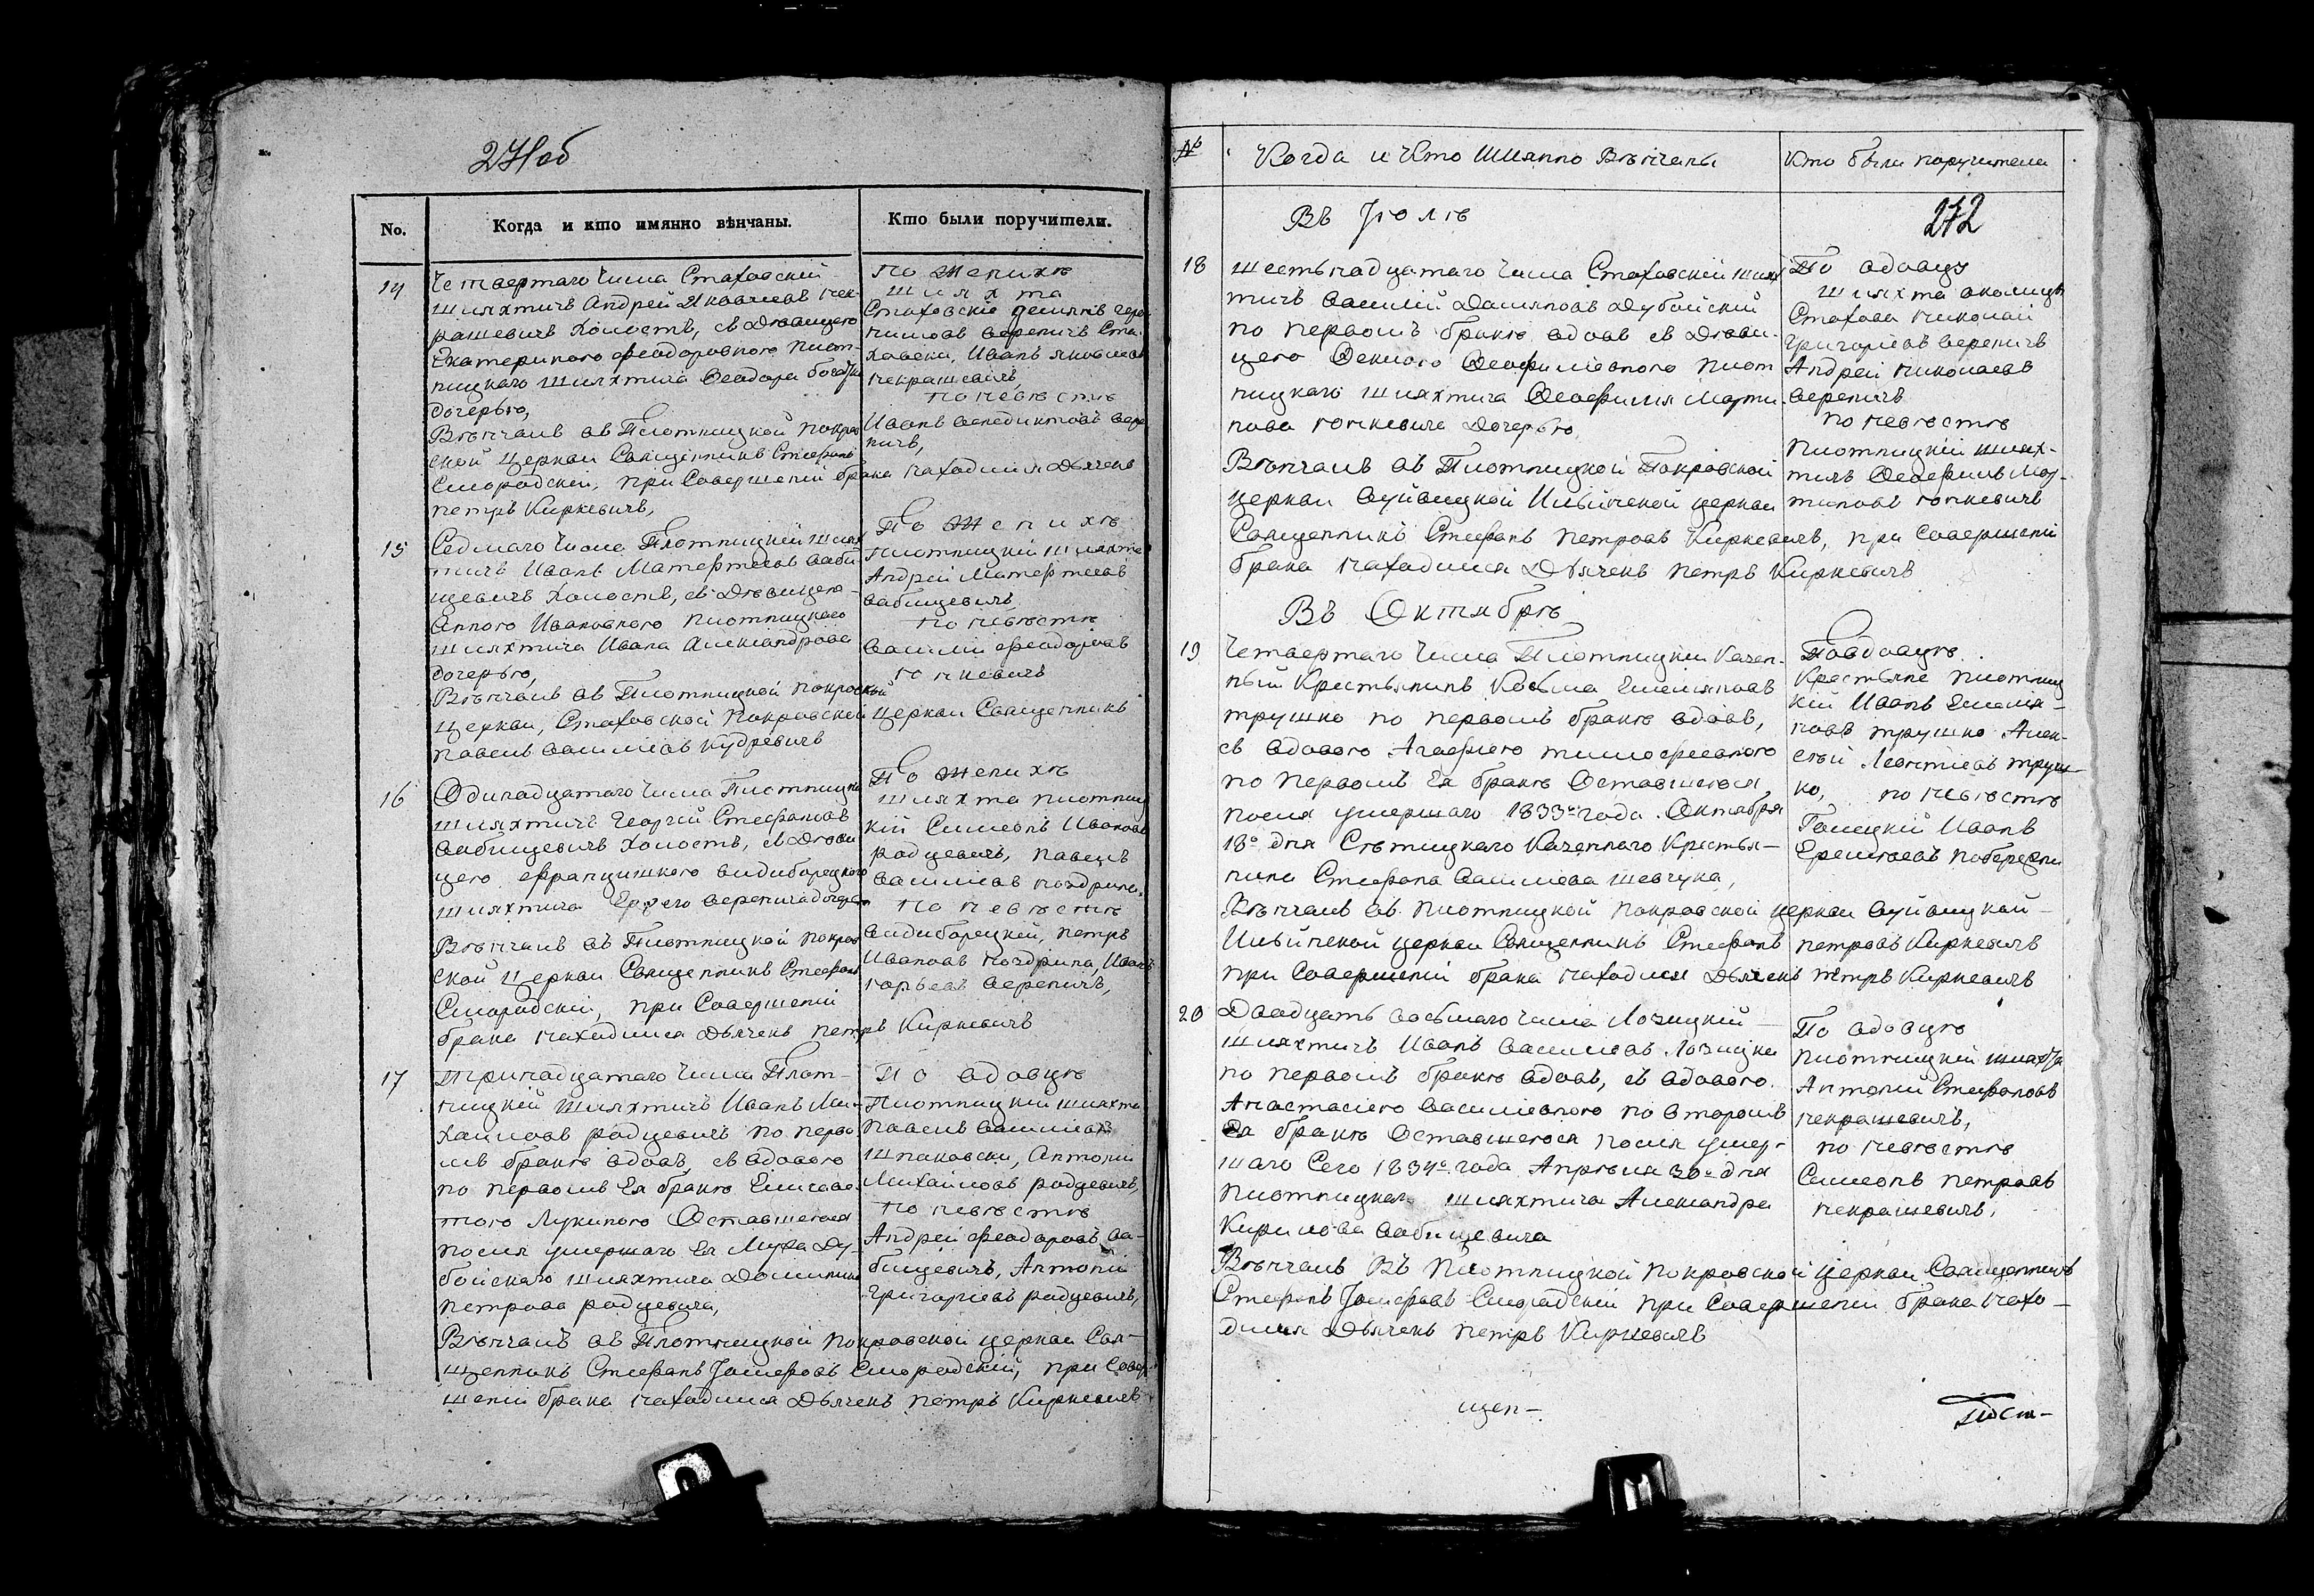 271об
No.
Когда и кто имянно вѣнчаны.
Кто были поручители.
14
Четвертаго числа Стаховскій
шляхтичъ Андрей Яковлевъ Нек-
рашевичъ холостъ, съ девицею
Екатериною Феодоровною Плот-
ницкаго шляхтича Феодора
дочерью,
Венчалъ въ Плотницкой Покров
ской церкви Священникъ Стефанъ
Смородскій, при совершеніи брака находился Дьячекъ
Петръ Киркевичъ,
По женихѣ
шляхта
Стаховскіе
Вереничъ Ста-
ховски, Иванъ Яковлевъ
Некрашевичъ,
По невѣстѣ
Иванъ Венедиктовъ Вере
ничъ,
15
Седмаго числа Плотницкій шлях
тичъ Иванъ Матерфеевъ Баби
щевичъ холостъ, съ девицею
Анною Ивановною Плотницкаго
шляхтича Ивана Александрова
дочерью,
Вѣнчалъ въ Плотницкой Покровской
церкви, Стаховской Покровской церкви Священникъ
Павелъ Васильевъ Кудревичъ
По женихѣ
Плотницкій шляхта
Андрей Матерфеевъ
Бабищевичъ
По невѣстѣ
Василій Феодоровъ
Гонкевичъ
16
Одинадцатаго числа Плотницкій
шляхтичъ Георгій Стефановъ
Бабищевичъ холостъ, съ девы
цею Францишкою Видиборецкого
шляхтича Веренича дочерью
Вѣнчалъ въ Плотницкой Покров
ской церкви Священникъ Стефанъ
Смородскій, при совершеніи
брака находился Дьячекъ Петръ Киркевичъ
По женихѣ
шляхта Плотниц
кій Симеонъ Ивановъ
Родцевичъ, Павелъ
Васильевъ Ноздрина.
По невѣстѣ
Видиборецкій, Петръ
Ивановъ Ноздрина, Иванъ
Юрьевъ Вереничъ,
17
Тринадцатаго числа Плот-
ницкій шляхтичъ Иванъ Ми-
хайловъ Родцевичъ по перво
мъ бракѣ вдовъ, съ вдовою
по первомъ ея бракѣ Елисаве
тою Лукиною оставшеюся
после умершаго ея мужа Ду-
бойскаго шляхтича Доминика
Петрова Родцевича,
Вѣнчалъ въ Плотницкой Покровской церкви Свя-
щенникъ Стефанъ Іосифовъ Смородскій, при совер-
шеніи брака находился Дьячекъ Петръ Киркевичъ
По вдовцѣ
Плотницкій шляхта
Павелъ Васильевъ
Шпаковски, Антоній
Михайловъ Родцевичъ,
По невѣстѣ
Андрей Феодоровъ Ба-
бищевичъ, Антоній
Григорьевъ Родцевичъ,
№
Когда и кто имянно Вѣнчаны
Кто были поручители
272
Въ Іюлѣ
18
Шестьнадцатаго числа Стаховскій шлях
тичъ Василій Дамяновъ Дубойскій
по первомъ бракѣ вдовъ съ деви-
цею Феклою Феофиловною Плот
ницкаго шляхтича Феофиля Марти-
нова Гонкевича дочерью,
Вѣнчалъ въ Плотницкой Покровской
церкви Вуйвицкой Ильинской церкви
Священникъ Стефанъ Петровъ Киркевичъ, при совершеніи
брака находился Дьячекъ Петръ Киркевичъ
По вдовцу
шляхта околицы
Стахова Николай
Григорьевъ Вереничъ
Андрей Николаевъ
Вереничъ
По невѣстѣ
Плотницкій шлях-
тичъ Феофиль Мар-
тиновъ Гонкевичъ
Въ Октябрѣ
19
Четвертаго числа Плотницкій казен-
ный крестьянинъ Козьма Емеляновъ
Трушко по первомъ бракѣ вдовъ,
съ вдовою Агафіею Тимофеевною
по первомъ ея бракѣ оставшеюся
после умершаго 1833го года Октября
18о дня Сѣтицкаго казеннаго крестья-
нина Стефана Васильева Шевчука,
Вѣнчалъ въ Плотницкой Покровской церкви Вуйвицкой
Ильинской церкви Священникъ Стефанъ Петровъ Киркевичъ
при совершеніи брака находился Дьячекъ Петръ Киркевичъ
По вдовцѣ
Крестьяне Плотниц
кій Иванъ Емеля-
новъ Трушко Алек-
сѣй Леонтіевъ Труш-
ко, по невѣстѣ
Иванъ
20
Двадцать восьмаго числа Лозицкій
шляхтичъ Иванъ Васильевъ Лозицки
по первомъ бракѣ вдовъ, съ вдовою
Анастасіею Васильевною по второмъ
Ея бракѣ оставшеюся после умер-
шаго сего 1834о года Апрѣля 30о дня
Плотницкаго шляхтича Александра
Кирилова Бабищевича
Вѣнчалъ Въ Плотницкой Покровской церкви Священникъ
Стефанъ Іосифовъ Смородскій при совершеніи брака нахо-
дился Дьячекъ Петръ Киркевичъ
По вдовцѣ
Плотницкій шляхта
Антоній Стефановъ
Некрашевичъ,
по невѣстѣ
Симеонъ Петровъ
Некрашевичъ,
щен-